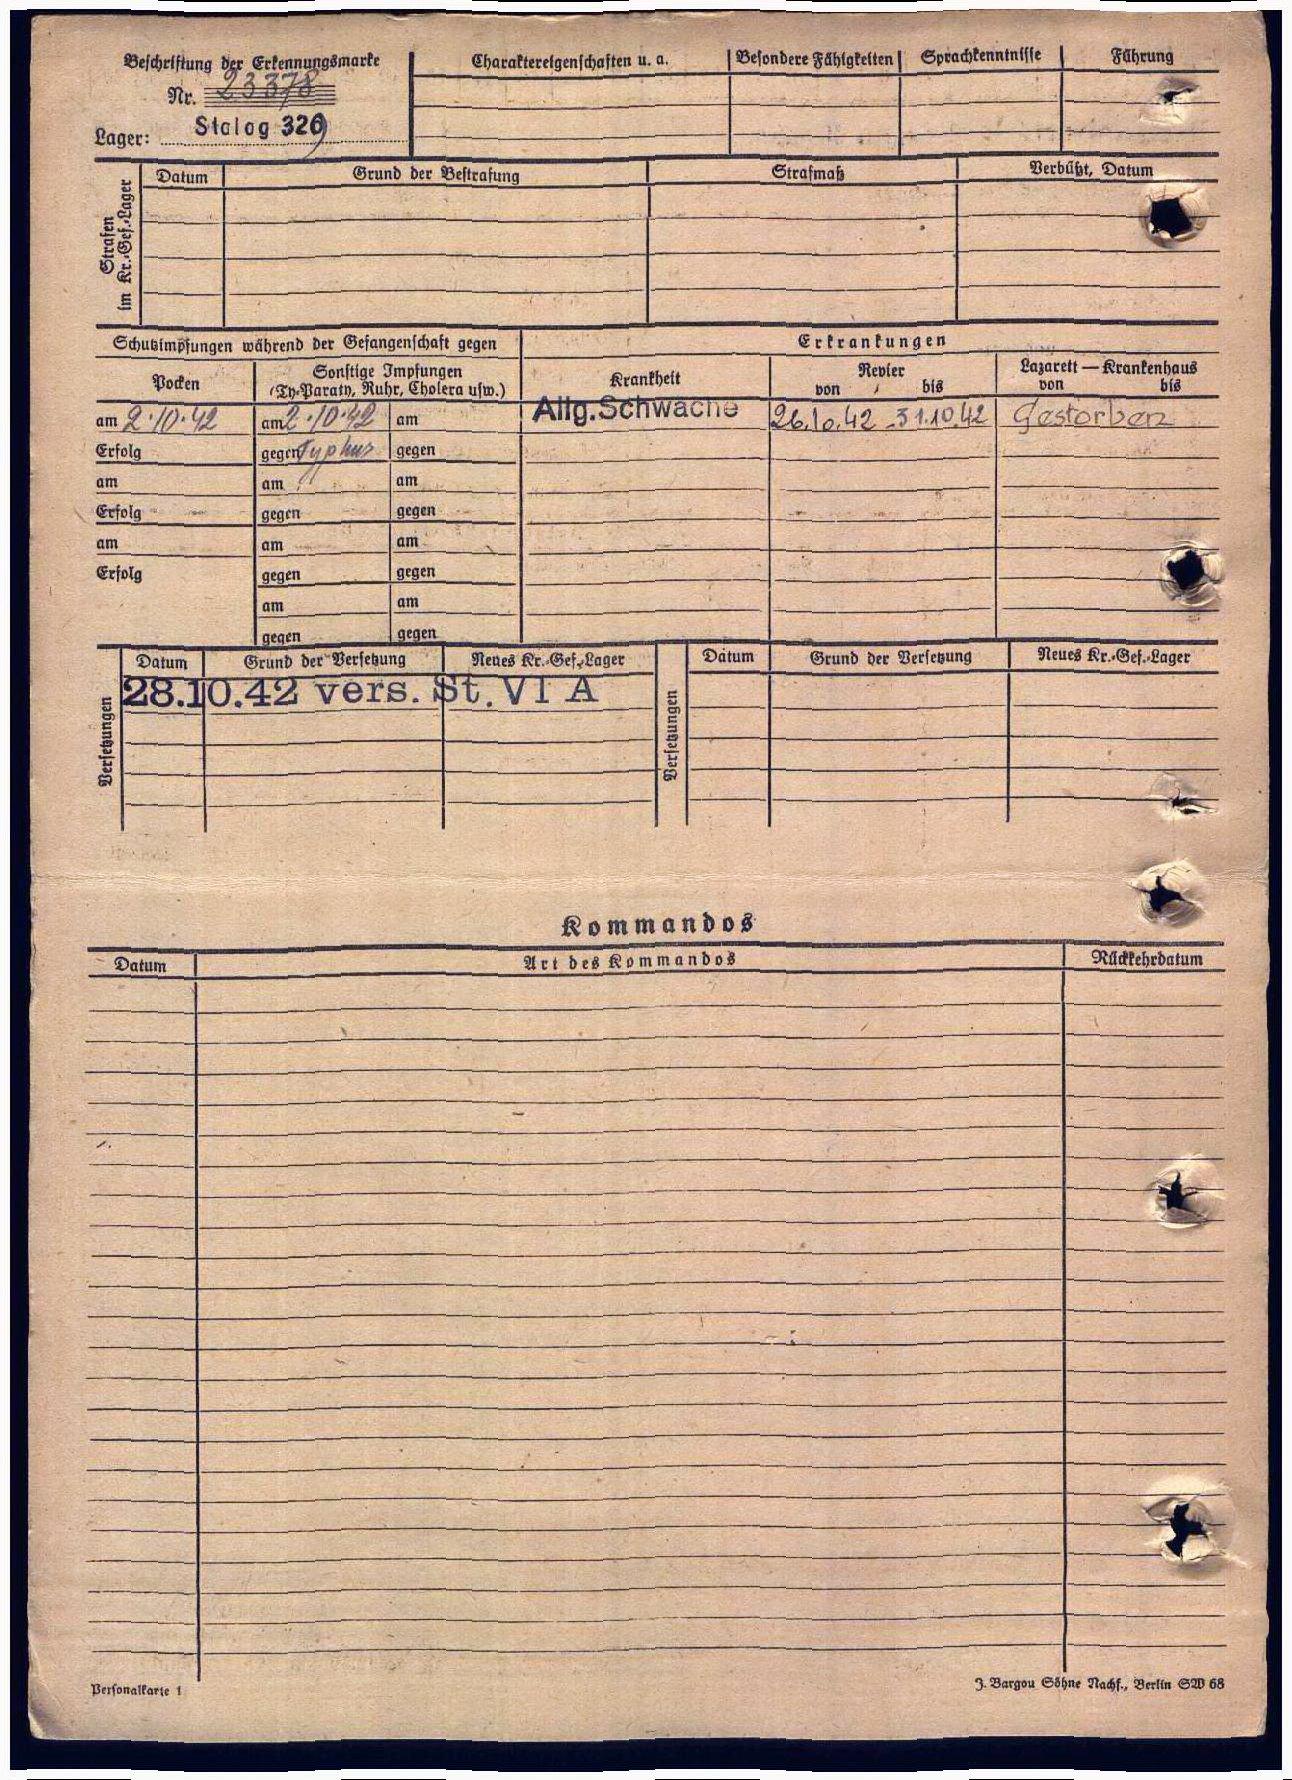 Beschriftung der Erkennungsmarke
Nr. 23378
Lager: Stalag 326
Charaktereigenschaften u. a.
Besondere Fähigkeiten
Sprachkenntnisse
Führung
Strafen im Kr.-Gef.-Lager
Datum
Grund der Bestrafung
Strafmaß
Verbüßt, Datum
Schutzimpfungen während der Gefangenschaft gegen
Erkrankungen
Pocken
Sonstige Impfungen
(Ty-Paraty, Ruhr, Cholera usw.)
Krankheit
Revier
von bis
Lazarett — Krankenhaus
von bis
am 2.10.42 am 2.10.42 am Allg.Schwäche 26.10.42 - 31.10.42 Gestorben
Erfolg gegen Typhus gegen
am am am
Erfolg gegen gegen
am am am
Erfolg gegen gegen
am am
gegen gegen
Versetzungen
Datum Grund der Versetzung Neues Kr.-Gef.-Lager
28.10.42 vers. St. VI A
Versetzungen
Datum Grund der Versetzung Neues Kr.-Gef.-Lager
Kommandos
Datum Art des Kommandos Rückkehrdatum
Personalkarte 1
J. Bargou Söhne Nachf., Berlin SW 68